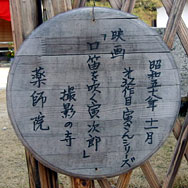 昭和五十八年十一月
作目寅さんシリーズ
映画
「口笛を吹く寅次郎」
撮影の寺
薬師院